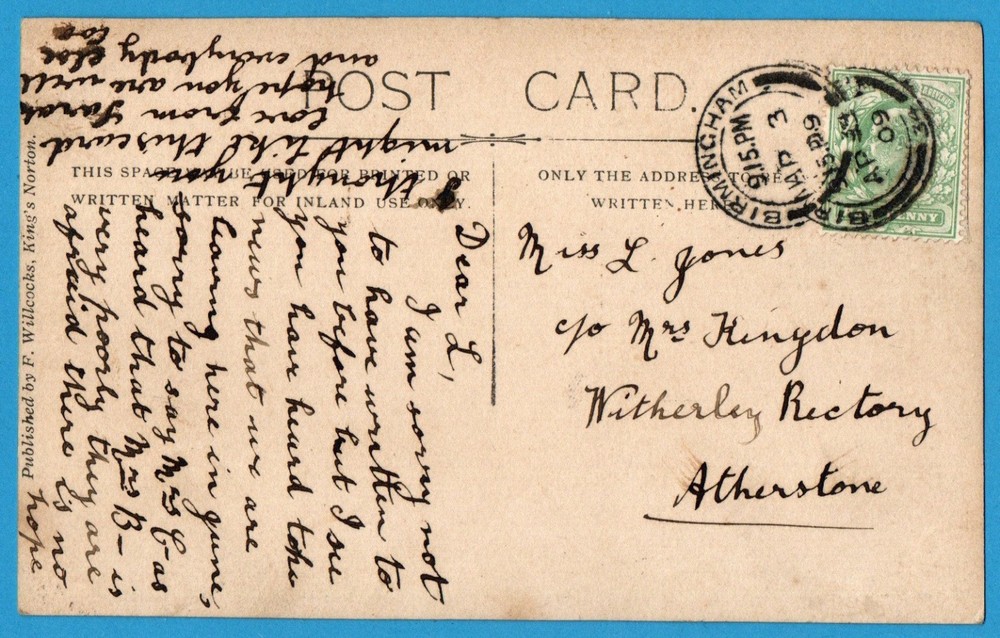 POST CARD.
THIS SPACE BE USED FOR PRINTED OR
WRITTEN MATTER FOR INLAND USE ONLY.
ONLY THE ADDRESS TO BE
WRITTEN HERE
Published by F. Willcocks, King's Norton.
BIRMINGHAM
9.15.PM
AP 3
09
PENNY
Miss L. Jones
c/o Mrs Kingdon
Witherley Rectory
Atherstone
Dear L,
I am sorry not
to have written to
you before but I see
you have heard the
news that we are
leaving here in June,
sorry to say Mrs C- as
heard that Mrs B- is
very poorly they are
afraid there is no
hope
I thought you
might like this card
love from Sarah
hope you are well
and everybody else
too